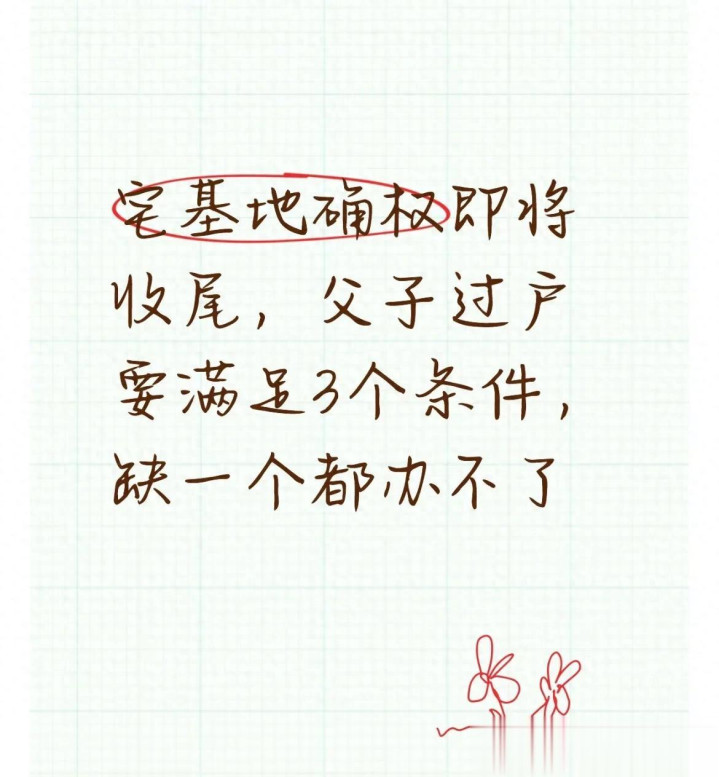 宅基地确权即将
收尾，父子过户
要满足3个条件，
缺一个都办不了